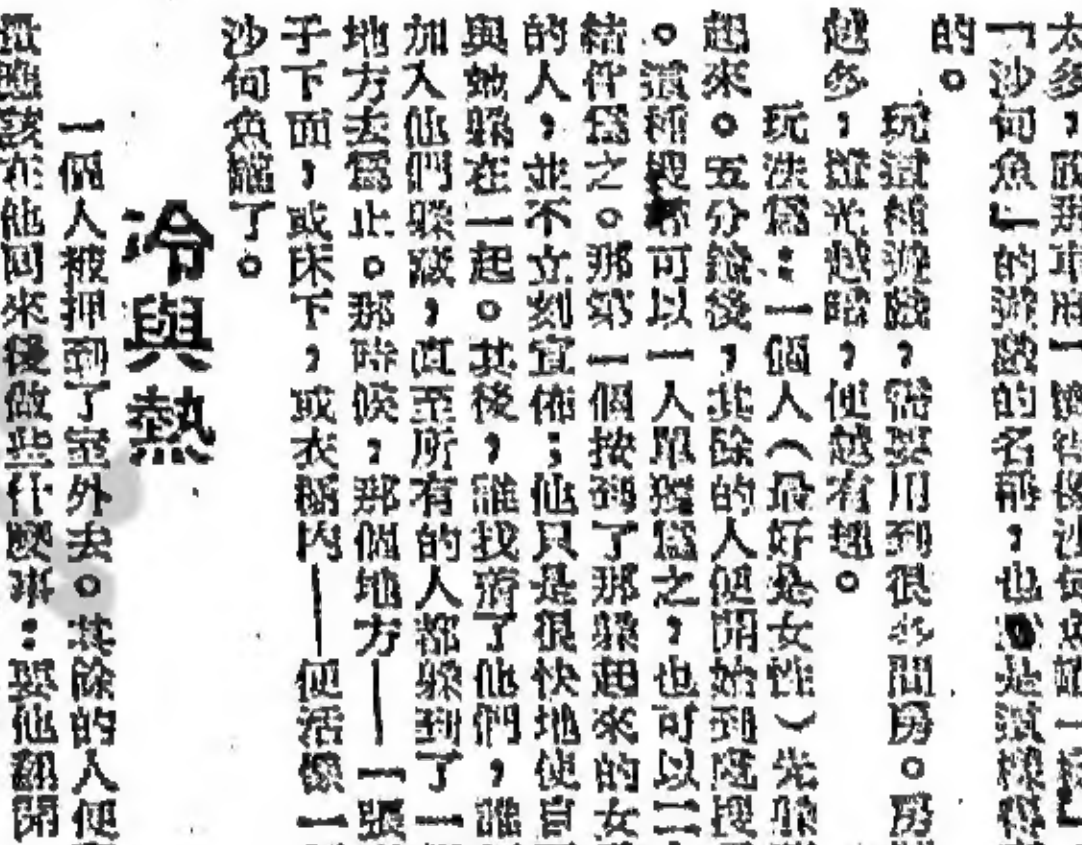 「沙甸魚」的遊戲的名稱,也是這樣得
的。
玩這種遊戲,需要用到很多間房。房
越多,燈光越暗,便越有趣。
玩法爲:一個人(最好是女性)先躲
起來。五分鐘後,其餘的人便開始到處搜
。這種搜索可以一人單獨爲之,也可以二
結伴爲之。那第一個找到了那躲起來的女
的人,並不立刻宣佈;他只是很快地使自
與她躲在一起。其後,誰找着了他們,誰
加入他們躲藏,直至所有的人都躲到了一
地方去爲止。那時候,那個地方——一張
子下面,或床下,或衣櫥內——便活像一
沙甸魚罐了。
冷與熱
一個人被押到了室外去。其餘的人便
該在他回來後做些什麼事:要他翻開